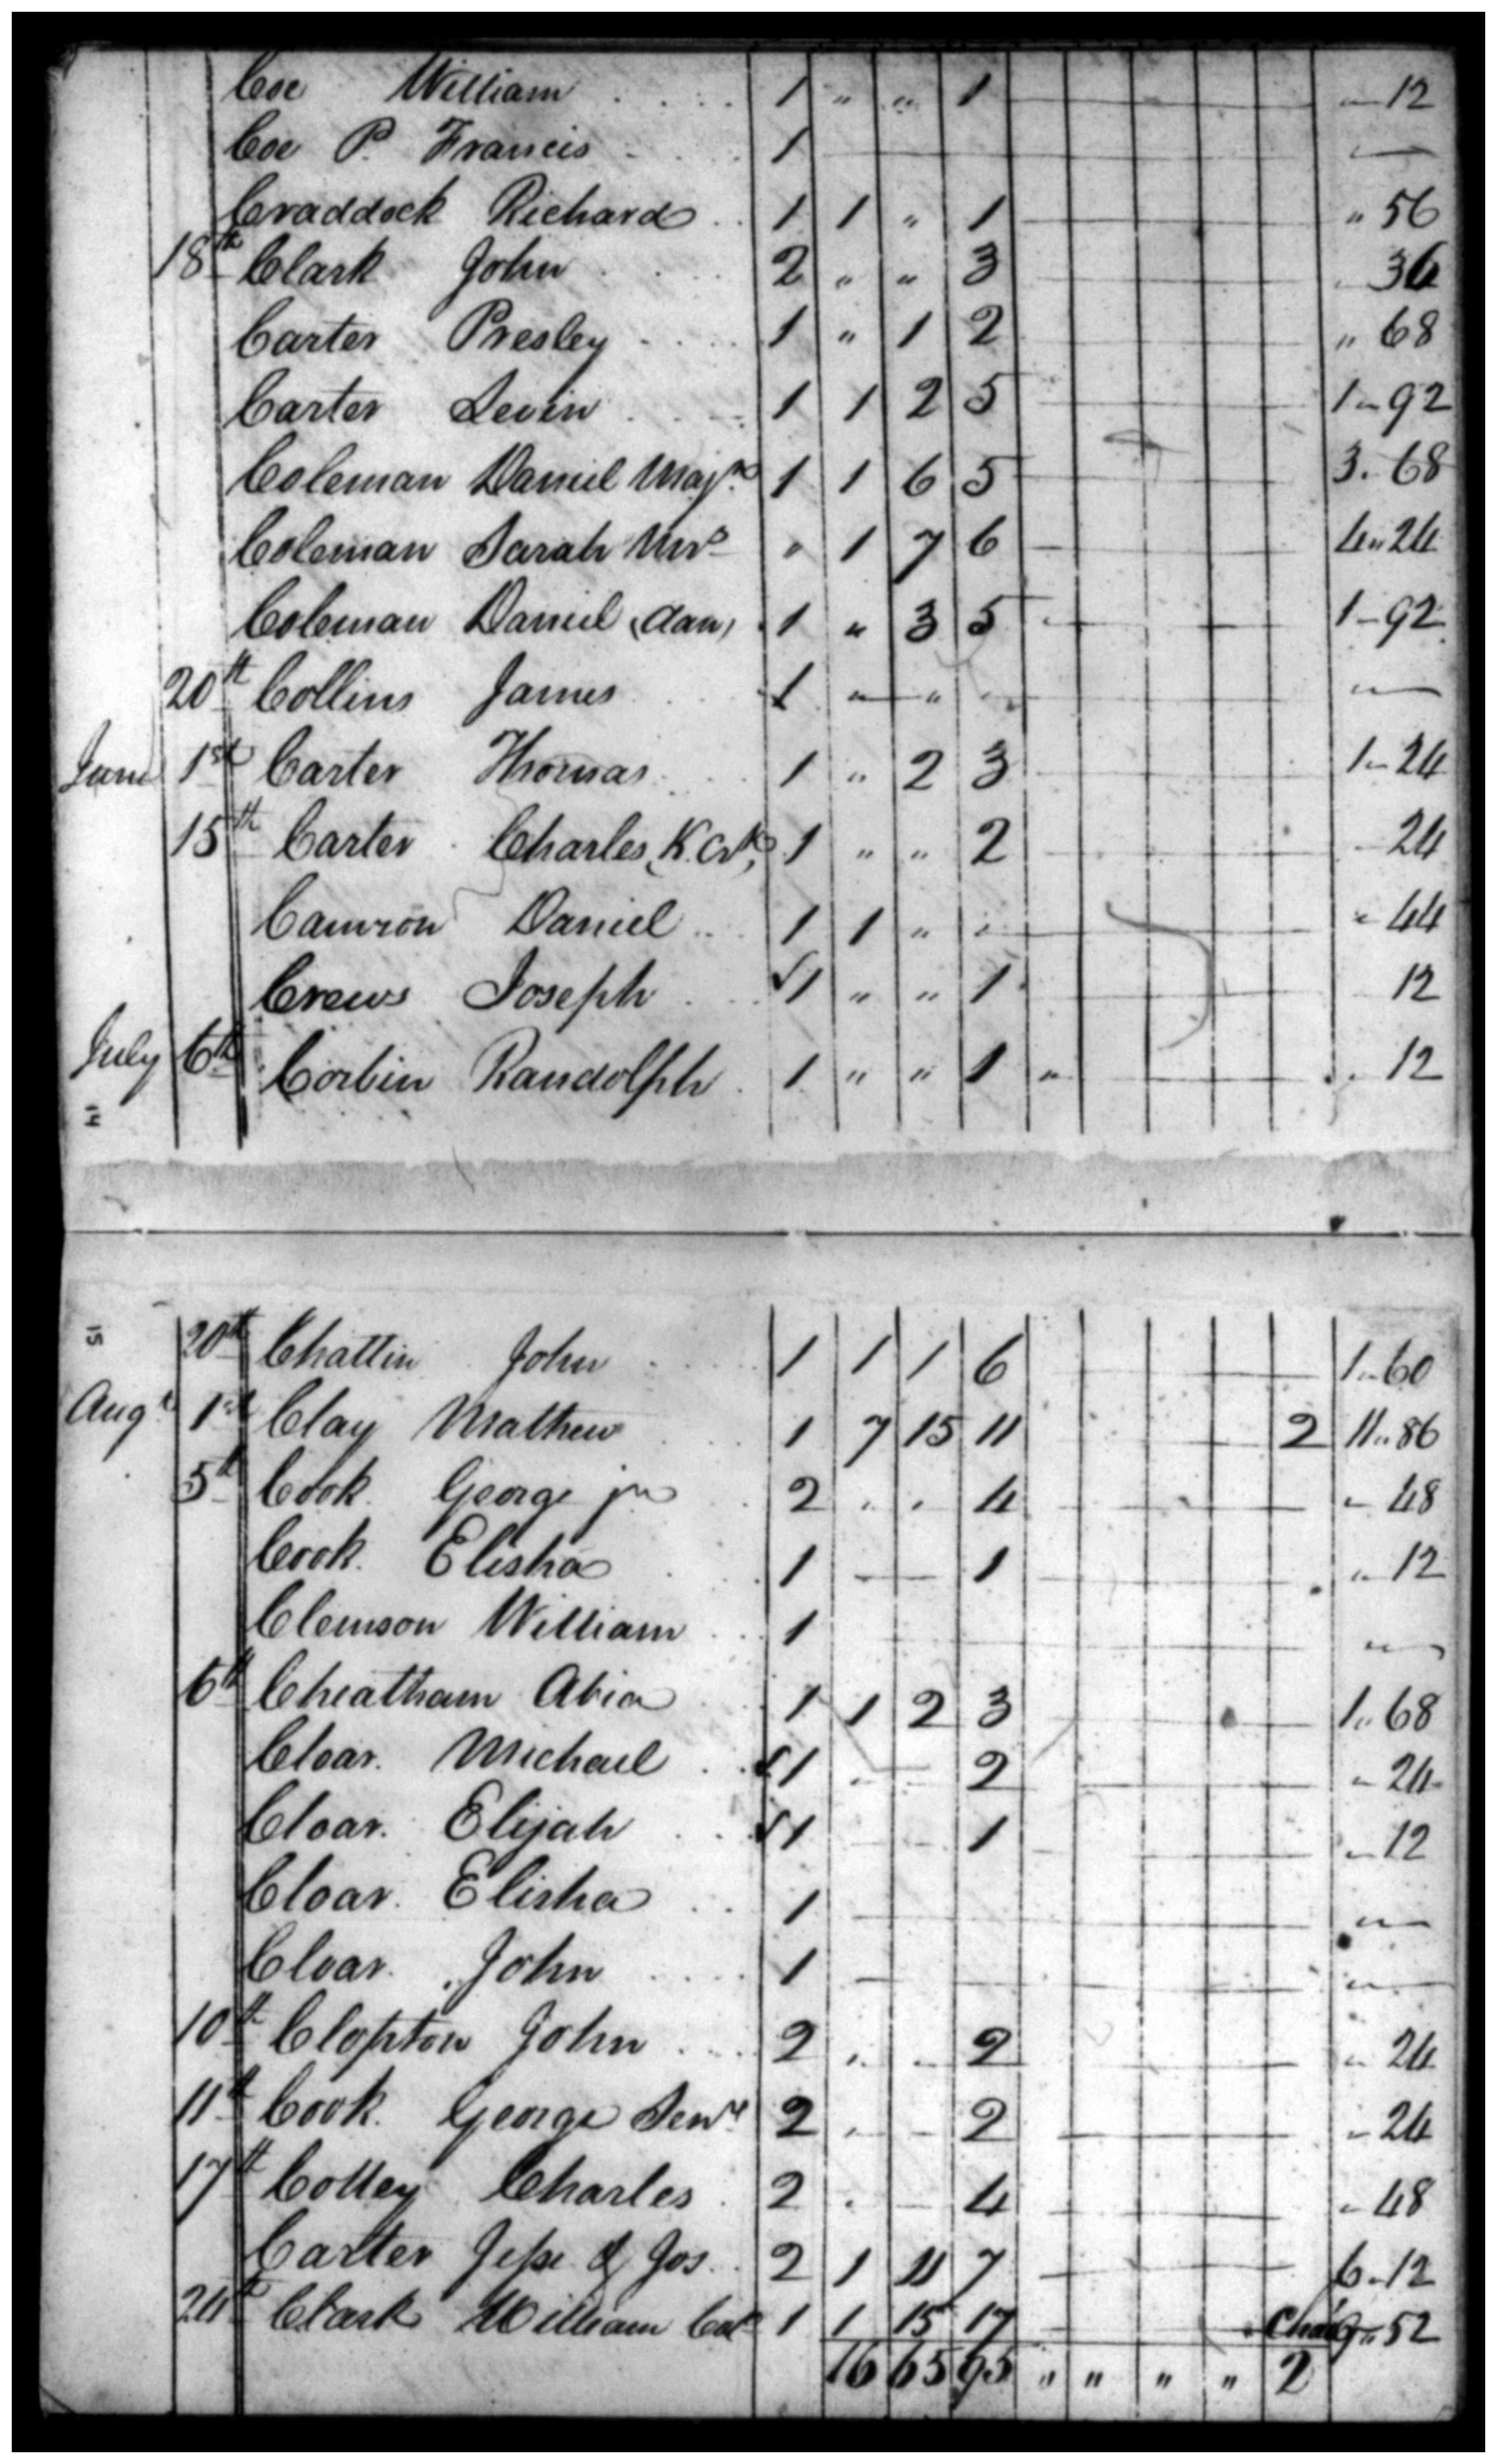 Coe William 1 " " 1 " 12
Coe P. Francis 1 —
Craddock Richard 1 1 " 1 " 56
18th Clark John 2 " " 3 36
Carter Presley 1 " 1 2 " 68
Carter Levin 1 1 2 5 1 " 92
Coleman Daniel Majr 1 1 6 5 3. 68
Coleman Sarah Mrs " 1 7 6 4 " 24
Coleman Daniel (dan) 1 " 3 5 1 - 92
20th Collins James 1 " " " "
June 1st Carter Thomas 1 " 2 3 1 - 24
15th Carter Charles (K. Crk) 1 " " 2 24
Camron Daniel 1 1 " " " 44
Crews Joseph √1 " " 1 12
July 6th Corbin Randolph 1 " " 1 " 12
14
15
20th Chattin John 1 1 1 6 1 " 60
Augt 1st Clay Mathew 1 7 15 11 2 11 " 86
5th Cook George jr 2 " " 4 " 48
Cook Elisha 1 — 1 " 12
Clemson William 1 "
6th Cheatham Abia 1 1 2 3 1 " 68
Cloar Michael √1 " — 2 " 24
Cloar Elijah √1 1 " 12
Cloar Elisha 1 "
Cloar John 1 — "
10th Clopton John 2 " " 2 " 24
11th Cook George Senr 2 " - 2 " 24
17th Cottey Charles 2 " — 4 " 48
Carter Jesse & Jos. 2 1 11 7 6 " 12
24th Clark William Cot 1 1 15 17 Chár 9 " 52
16 65 95 " " " " 2